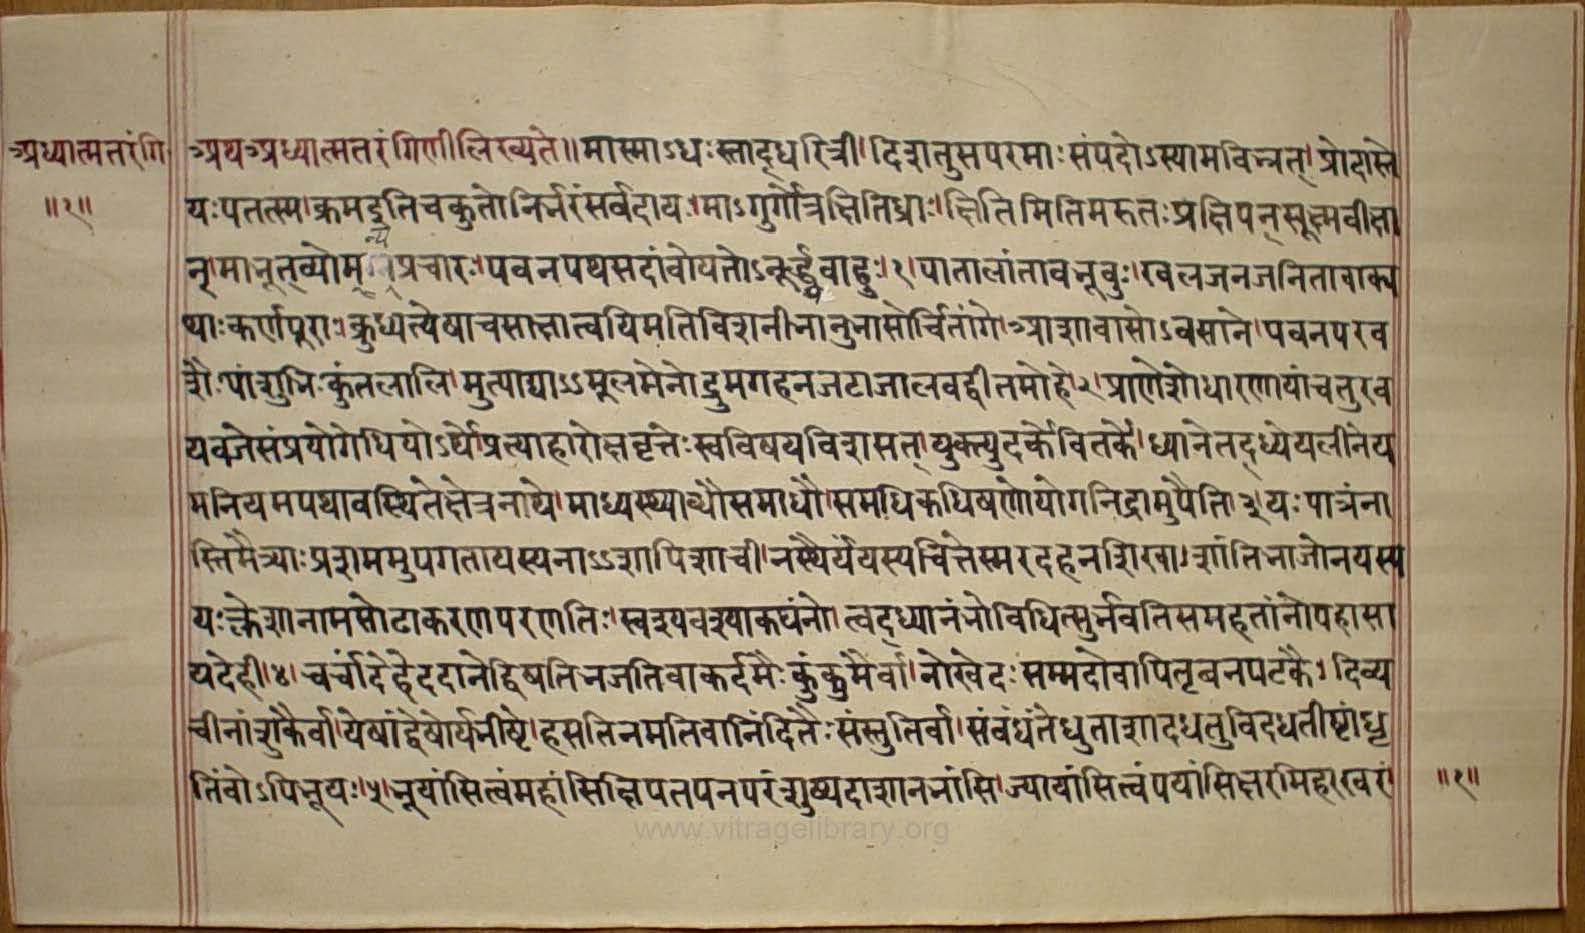 अध्यात्मतरंगि
॥१॥
अथअध्यात्मतरंगिणीलिख्यते॥मास्माऽधःस्ताद्धरित्री।दिशतुसपरमाःसंपदोऽस्यामविभ्रत्।प्रोदास्ते
यःपतत्स्म।क्रमदुतिचकुतोनिर्भरंसर्वदायः।माऽगुर्गोत्रक्षितिध्राः।क्षितिमितिमरुतःप्रक्षिपन्सूक्ष्मवीक्षा
न्।माभूत्व्योम्नि।प्रचारः।पवनपथसदांवोयतोऽभूर्द्ध्वबाहुः।१।पातालांतावभूवुः।खलजनजनितावाक्य
थाःकर्णपूराः।क्रुध्यत्येषाचसाक्षात्वयिमतिविशनीनानुनासोर्चितांगे।आशावासोऽवसाने।पवनपरव
शैःपांशुभिःकुंतलालि।मुत्पाद्याऽऽमूलमेनोद्रुमगहनजटाजालवद्वीतमोहे।२।प्राणेशोधारणायांचतुरव
यवजेसंप्रयोगेधियोऽर्थे।प्रत्याहारोक्षवृत्तेःस्वविषयविशसत्।युक्त्युदर्केवितर्के।ध्यानेतद्ध्येयलीनेय
मनियमपथावस्थितेक्षेत्रनाथे।माध्यस्थ्याब्धौसमाधौ।समधिकधिषणोयोगनिद्रामुपैति।३।यःपात्रंना
स्तिमैत्र्याःप्रशममुपगतायस्यनाऽऽशापिशाची।नस्थैर्यंयस्यचित्तेस्मरदहनशिखा।शांतिभाजोनयस्य
यःक्लेशानामसोढाकरणपरणतिः।स्वश्यवश्याकथंनो।त्वद्ध्यानंभोविधित्सुर्नवतिसमहतांनोपहासा
यदेही।४।चर्चांदेहेददानेद्विषतिभजतिवाकर्दमैःकुंकुमैर्वा।नोखेदःसम्मदोवापितृवनपटकै।दिव्य
चीनांशुकैर्वा।येषांद्वेषोर्थनीष्टे।हसतिनमतिवानिंदितैःसंस्तुतिर्वा।संबंधंतेधुताशादधतुविदधतीष्टांधृ
तिंवोऽपिभूयः।५।भूयांसित्वंमहांसिक्षिपतपनपरंशुष्यदाशाननांसि।ज्यायांसित्वंपयांसिक्षरमिहरखरं
॥१॥
www.vitragelibrary.org